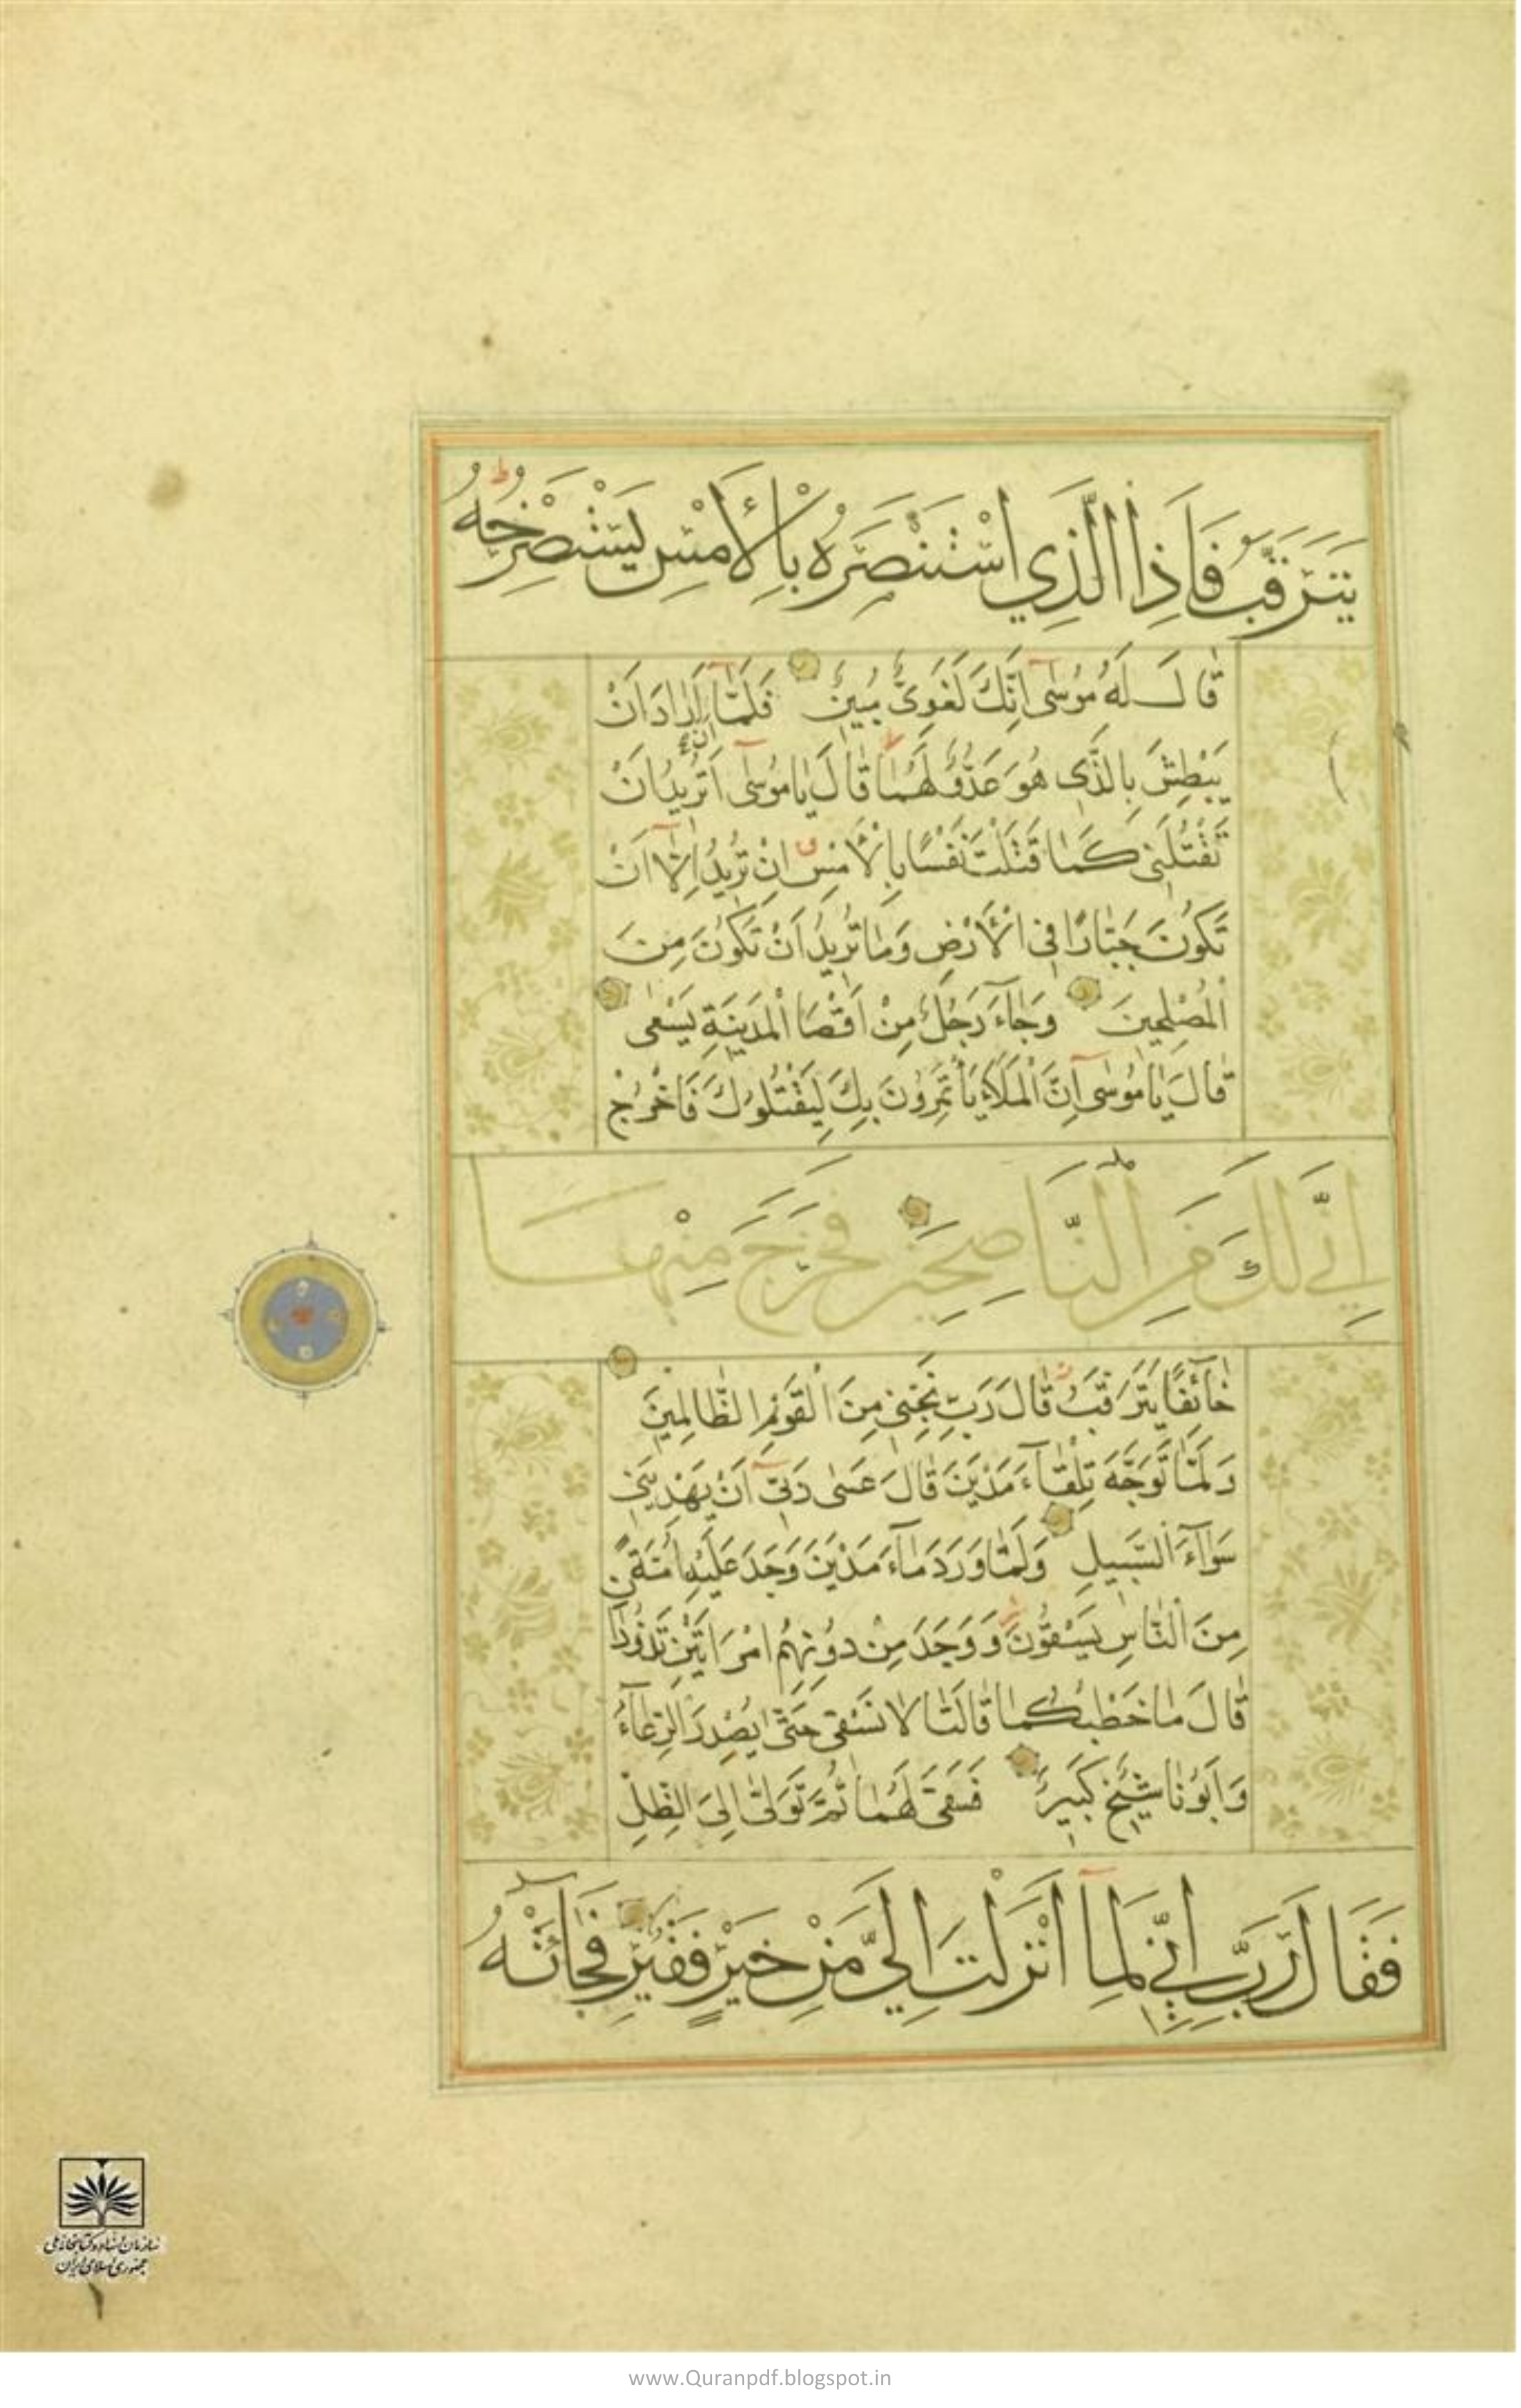 يَتَرَقَّبُ فَاِذَا الَّذِي اسْتَنْصَرَهُ بِالْأَمْسِ يَسْتَصْرِخُهُ
قَالَ لَهُ مُوسٰى اِنَّكَ لَغَوِىٌّ مُبِينٌ فَلَمَّا اَنْ اَرَادَ اَنْ
يَبْطِشَ بِالَّذِى هُوَ عَدُوٌّ لَهُمَا قَالَ يَا مُوسٰى اَتُرِيدُ اَنْ
تَقْتُلَنِى كَمَا قَتَلْتَ نَفْسًا بِالْأَمْسِ اِنْ تُرِيدُ اِلَّا اَنْ
تَكُونَ جَبَّارًا فِى الْأَرْضِ وَمَا تُرِيدُ اَنْ تَكُونَ مِنَ
الْمُصْلِحِينَ وَجَآءَ رَجُلٌ مِنْ اَقْصَا الْمَدِينَةِ يَسْعٰى
قَالَ يَا مُوسٰى اِنَّ الْمَلَاَ يَأْتَمِرُونَ بِكَ لِيَقْتُلُوكَ فَاخْرُجْ
اِنِّي لَكَ مِنَ النَّاصِحِينَ فَخَرَجَ مِنْهَا
خَآئِفًا يَتَرَقَّبُ قَالَ رَبِّ نَجِّنِى مِنَ الْقَوْمِ الظَّالِمِينَ
وَلَمَّا تَوَجَّهَ تِلْقَآءَ مَدْيَنَ قَالَ عَسٰى رَبِّى اَنْ يَهْدِيَنِى
سَوَآءَ السَّبِيلِ وَلَمَّا وَرَدَ مَآءَ مَدْيَنَ وَجَدَ عَلَيْهِ اُمَّةً
مِنَ النَّاسِ يَسْقُونَ وَوَجَدَ مِنْ دُونِهِمُ امْرَاَتَيْنِ تَذُودَانِ
قَالَ مَا خَطْبُكُمَا قَالَتَا لَا نَسْقِى حَتّٰى يُصْدِرَ الرِّعَآءُ
وَاَبُونَا شَيْخٌ كَبِيرٌ فَسَقٰى لَهُمَا ثُمَّ تَوَلّٰى اِلَى الظِّلِّ
فَقَالَ رَبِّ اِنِّي لِمَا اَنْزَلْتَ اِلَيَّ مِنْ خَيْرٍ فَقِيرٌ فَجَائَتْهُ
سازمان اسناد و کتابخانه ملی
جمهوری اسلامی ایران
١
www.Quranpdf.blogspot.in